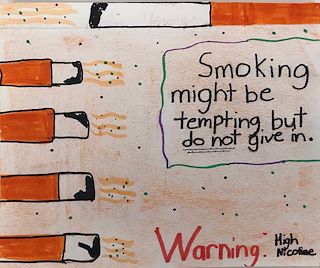 Smoking
might be
tempting but
do not give in.
Warning:
High
Nicotine